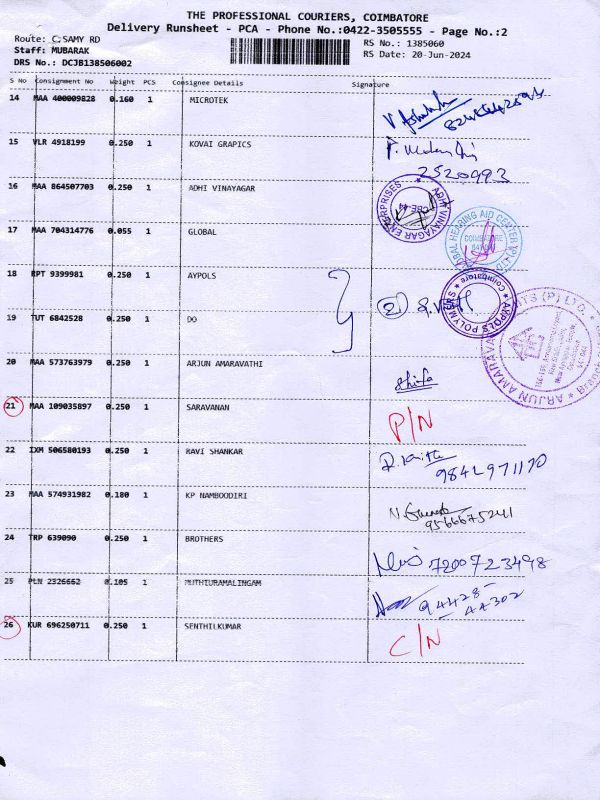 THE PROFESSIONAL COURIERS, COIMBATORE
Delivery Runsheet - PCA - Phone No.:0422-3505555 - Page No.:2
Route: C.SAMY RD
RS No.: 1385060
Staff: MUBARAK
RS Date: 20-Jun-2024
DRS No.: DCJB138506002
S No Consignment No Weight PCS Consignee Details Signature
14 MAA 400009828 0.160 1 MICROTEK
15 VLR 4918199 0.250 1 KOVAI GRAPICS
2520993
16 MAA 864507703 0.250 1 ADHI VINAYAGAR
ADHI VINAYAGAR ENTERPRISES
CBE-44
17 MAA 704314776 0.055 1 GLOBAL
HEARING AID CENTER
COIMBATORE
18 RPT 9399981 0.250 1 AYPOLS
AYPOLS POLYMERS
Coimbatore
19 TUT 6842528 0.250 1 DO
2
20 MAA 573763979 0.250 1 ARJUN AMARAVATHI
ARJUN AMARAVA
(P) LTD.
21 MAA 109035897 0.250 1 SARAVANAN
P/N
22 IXM 506580193 0.250 1 RAVI SHANKAR
9842971170
23 MAA 574931982 0.180 1 KP NAMBOODIRI
9566675241
24 TRP 639090 0.250 1 BROTHERS
7200723498
25 PLN 2326662 0.105 1 MUTHURAMALINGAM
94428-
44302
26 KUR 696250711 0.250 1 SENTHILKUMAR
C/N